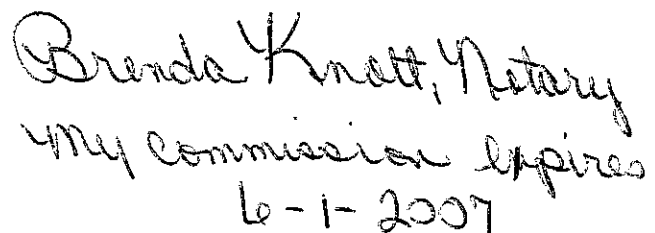 Brenda Knott, Notary
My commission expires
6-1-2007